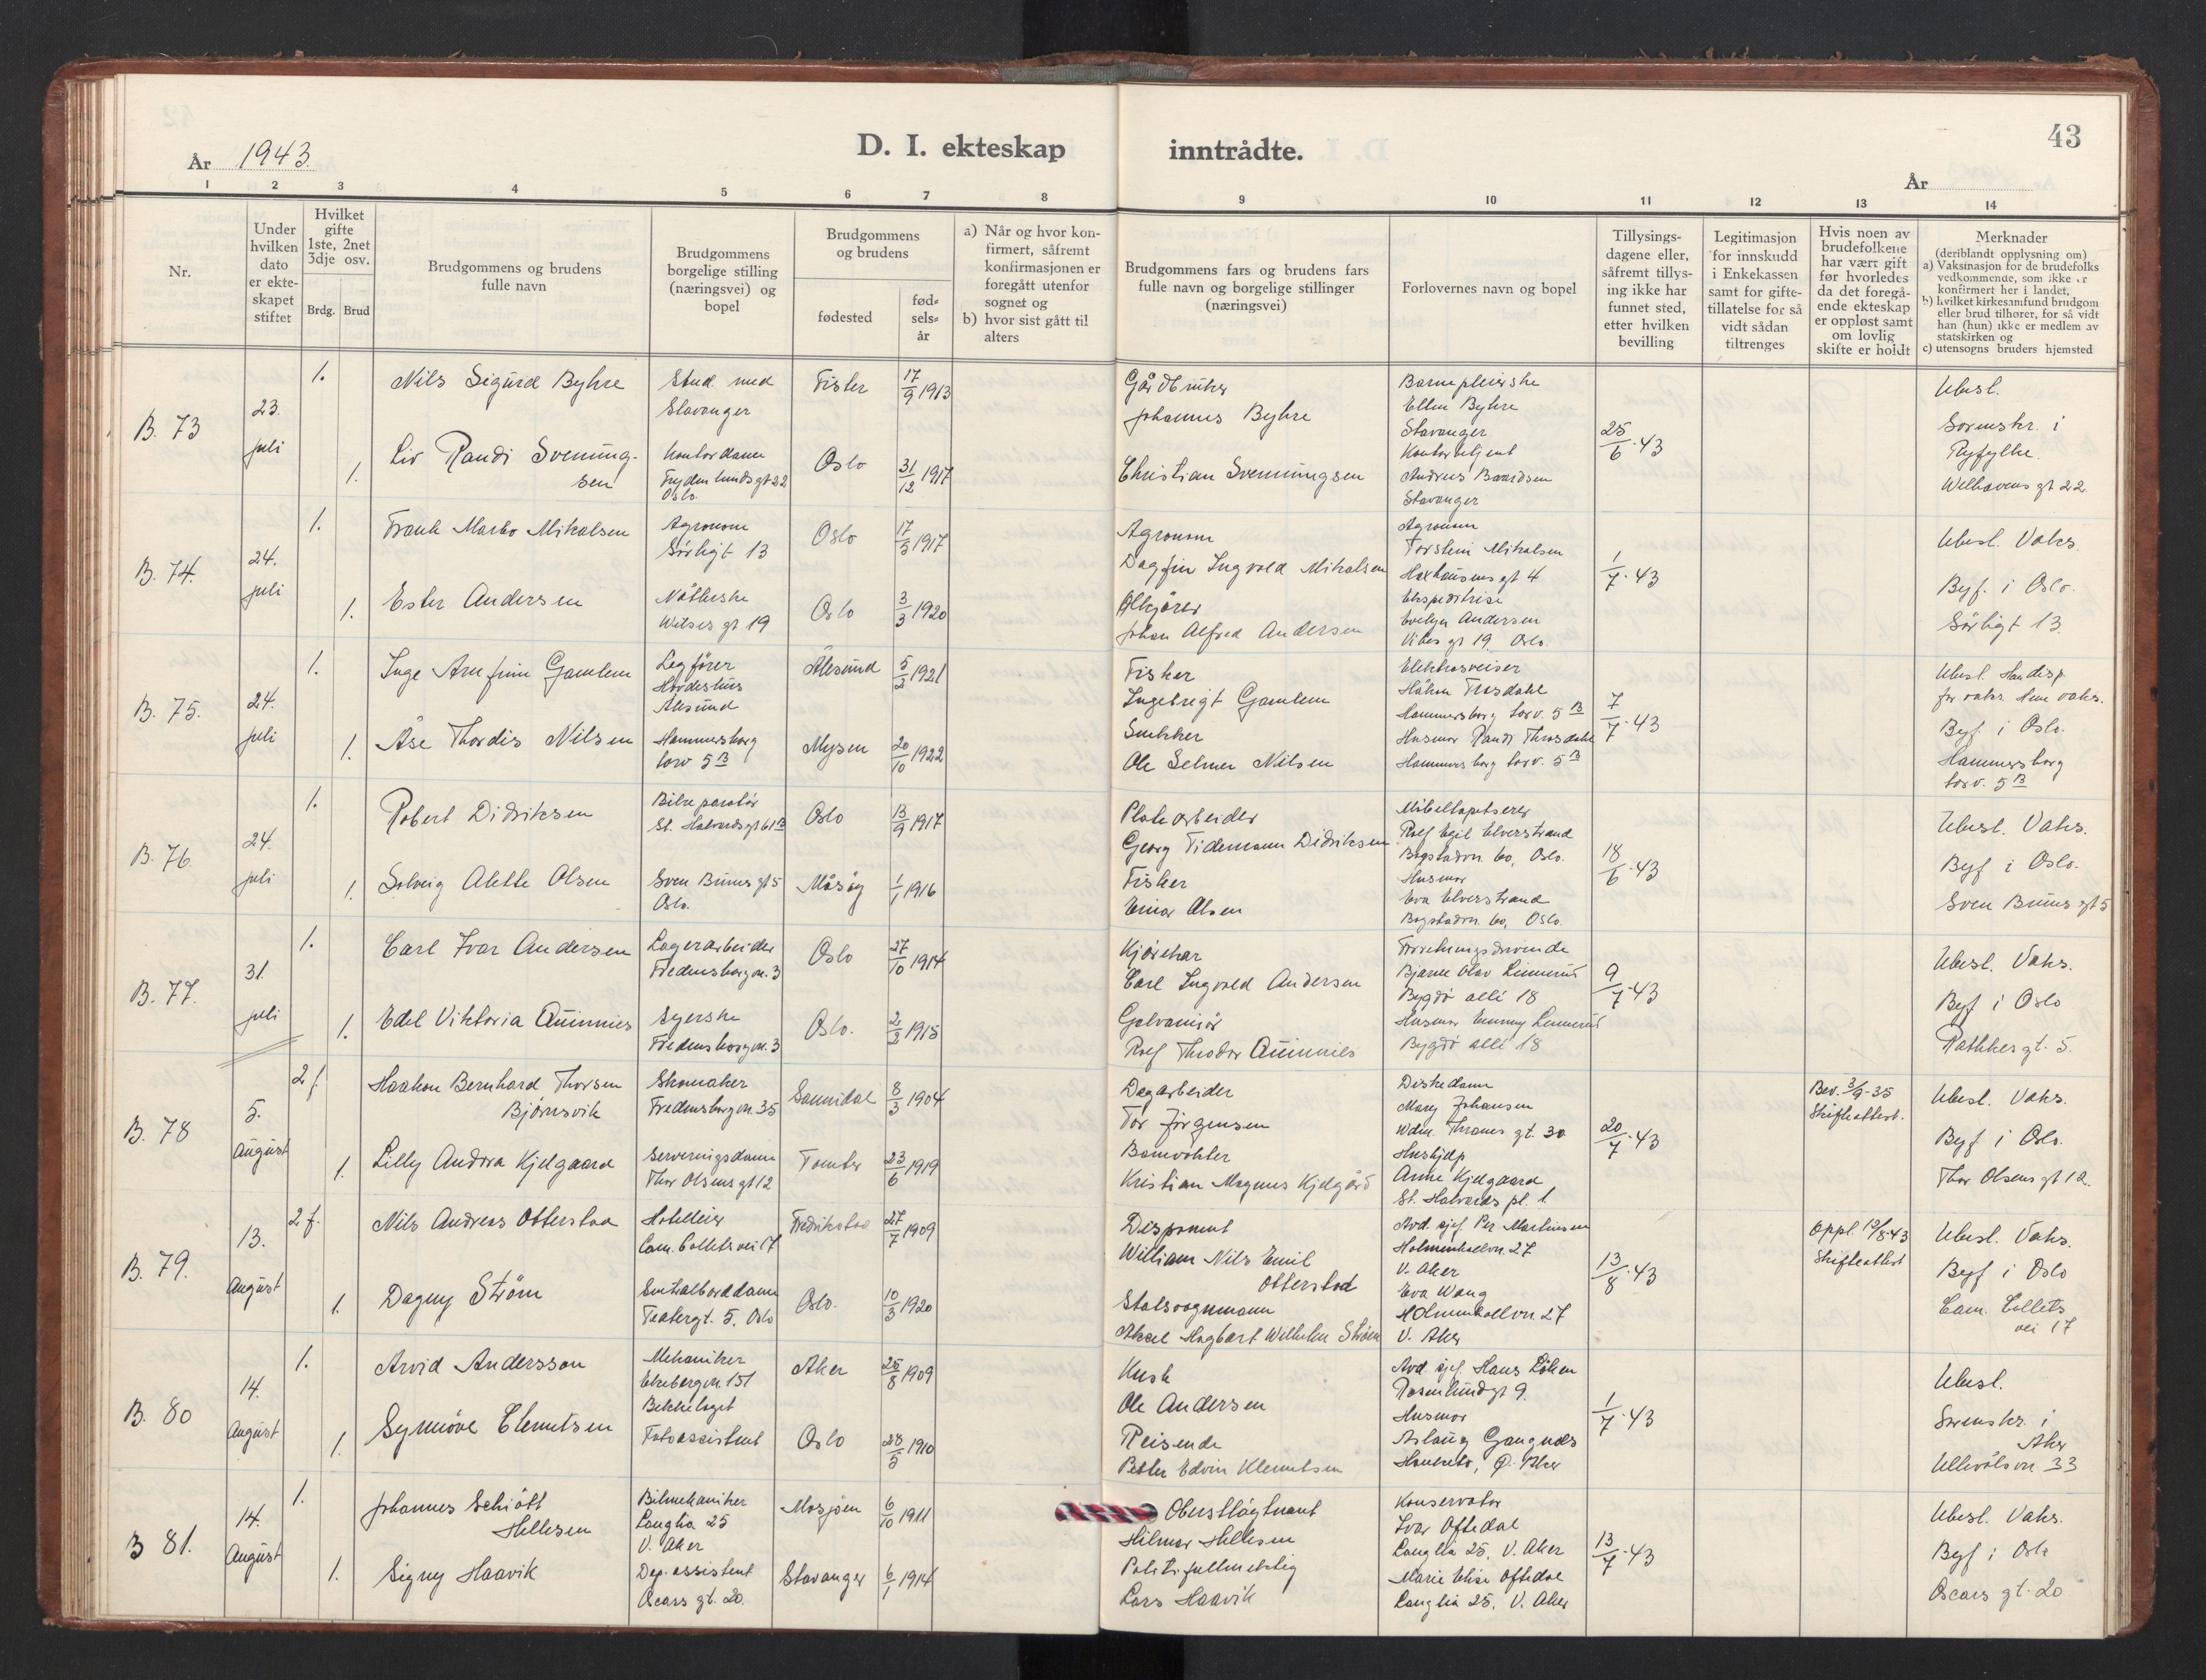 43
År 1943.
D. I. ekteskap inntrådte.
År
1 2 3 4 5 6 7 8 9 10 11 12 13 14
Nr.
Under
hvilken
dato
er ekte-
skapet
stiftet
Hvilket
gifte
1ste, 2net
3dje osv.
Brdg. Brud
Brudgommens og brudens
fulle navn
Brudgommens
borgelige stilling
(næringsvei) og
bopel
Brudgommens
og brudens
fødested
fød-
sels-
år
a) Når og hvor kon-
firmert, såfremt
konfirmasjonen er
foregått utenfor
sognet og
b) hvor sist gått til
alters
Brudgommens fars og brudens fars
fulle navn og borgelige stillinger
(næringsvei)
Forlovernes navn og bopel
Tillysings-
dagene eller,
såfremt tillys-
ing ikke har
funnet sted,
etter hvilken
bevilling
Legitimasjon
for innskudd
i Enkekassen
samt for gifte-
tillatelse for så
vidt sådan
tiltrenges
Hvis noen av
brudefolkene
har vært gift
før hvorledes
da det foregå-
ende ekteskap
er oppløst samt
om lovlig
skifte er holdt
Merknader
(deriblandt opplysning om)
a) Vaksinasjon for de brudefolks
vedkommende, som ikke er
konfirmert her i landet,
b) hvilket kirkesamfund brudgom
eller brud tilhører, for så vidt
han (hun) ikke er medlem av
statskirken og
c) utensogns bruders hjemsted
B. 73
23.
juli
1.
Nils Sigurd Byhre
Stud med
Stavanger
Fister
17/9 1913
1.
Liv Randi Svenning-
sen
Kontordame
Frydenlundsgt 22
Oslo
Oslo
31/12 1917
Gårdbruker
Johannes Byhre
Christian Svenningsen
Barnepleierske
Ellen Byhre
Stavanger
Andreas Baardsen
Stavanger
25/6-43
Ubesl.
Sorenskr. i
Ryfylke.
Welhavens gt 22.
B. 74.
24.
juli
1.
Frank Marbo Mikalsen
Agronom
Sörligt 13
Oslo
17/5 1917
1.
Ester Andersen
Nåtlerske
gt 19
Oslo
3/3 1920
Agronom
Dagfin Ingvald Mikalsen
Ølkjörer
Johan Alfred Andersen
Agronom
Torstein Mikalsen
Haxthausens gt 4
Ekspeditrise
Evelyn Andersen
Vibes gt 19. Oslo.
1/7-43
Ubesl. Vaks.
Byf. i Oslo.
Sörligt 13.
B. 75.
24.
juli
1.
Inge Arnfinn Gamlem
Lagförer
Ålesund
Ålesund
5/2 1921
1.
Åse Thordis Nilsen
Hammersborg
torv 5 B
Mysen
20/10 1922
Fisker
Ingebrigt Gamlem
Snekker
Ole Selmer Nilsen
Elektrosveiser
Håkon Trosdahl
Hammersborg torv. 5 B
Husmor Randi Throsdahl
Hammersborg torv. 5 B
7/7-43
Ubesl. Han disp.
for vaks. Hun vaks.
Byf i Oslo.
Hammersborg
torv. 5 B
B. 76.
24.
juli
1.
Robert Didriksen
Bilreparatör
St. Halvardsgt 61 B
Oslo
13/9 1917
1.
Solveig Alette Olsen
Sven Bruns gt 5
Oslo.
Måsöy
1/1 1916
Platearbeider
Georg Tidemann Didriksen
Fisker
Einar Olsen
Möbeltapetserer
Rolf Egil Elverstrand
Bogstadvn. 60, Oslo.
Husmor
Eva Elverstrand
Bogstadvn. 60, Oslo
18/6-43
Ubesl. Vaks.
Byf i Oslo.
Sven Bruns gt 5
B. 77.
31.
juli
1.
Carl Ivar Andersen
Lagerarbeider
Fredensborgvn. 3
Oslo
27/10 1914
1.
Edel Viktoria Quinnies
Syerske
Fredensborgvn. 3
Oslo.
2/2 1915
Kjörekar
Carl Ingvald Andersen
Galvanisör
Rolf Theodor Quinnies
Forretningsdrivende
Bjarne Olav Linnerud
Bygdö allé 18
Husmor Emmy Linnerud
Bygdö allé 18
9/7-43
Ubesl. Vaks.
Byf i Oslo
Rathkes gt. 5.
B. 78
5.
august
2 f.
Haakon Bernhard Thorsen
Björnsvik
Skomaker
Fredensborgvn. 35
Sannidal
8/3 1904
1.
Lilly Andrea Kjelgaard
Serveringsdame
Thor Olsens gt 12
Tomter
23/6 1919
Dagarbeider
Tor Jörgensen
Banevokter
Kristian Magnus Kjelgård
Diskedame
Mary Johansen
Wdm. Thranes gt. 30
Hushjelp
Anne Kjelgaard
St. Halvards pl. 1
20/7-43
Bev. 3/9-35
Skifteattest.
Ubesl. Vaks.
Byf i Oslo.
Thor Olsens gt 12.
B. 79.
13.
August
2 f.
Nils Andreas Otterstad
Hotelleier
Cam. Colletts vei 17
Fredrikstad
27/7 1909
1.
Dagny Ström
Sentralborddame
Teatergt. 5. Oslo
Oslo.
10/3 1920
Disponent
William Nils Emil
Otterstad
Stalsvognmann
Aksel Hagbart Wilhelm Ström
Avd. sjef. Per Martinsen
Holmenkollvn. 27
V. Aker
Eva Wang
Holmenkollvn 27
V. Aker
13/8-43
Oppl. 10/8-43
Skifteattest
Ubesl. Vaks.
Byf i Oslo
Cam. Colletts
vei 17
B. 80
14.
August
1.
Arvid Andersson
Mekaniker
Ekebergvn. 151
Bekkelaget
Aker
25/8 1909
1.
Synnöve Clemetsen
Fotoassistent
Oslo
28/5 1910
Kusk
Ole Andersen
Reisende
Petter Edvin Klemetsen
Avd. sjef. Hans Löken
Rosenlundgt 9.
Husmor
Aslaug Gangnæs
Hauketo, Ø. Aker
1/7-43
Ubesl.
Sorenskr. i
Aker
Ullevålsvn 33
B 81.
14.
August
1.
Johannes Schiött
Hellesen
Bilmekaniker
Langlia 25
V. Aker
Mosjøen
6/10 1911
1.
Signy Haavik
Dep. assistent
Oscars gt. 20.
Stavanger
6/1 1914
Oberstløytnant
Hilmar Hellesen
Politifullmektig
Lars Haavik
Konservator
Ivar Oftedal
Langlia 25, V. Aker
Marie Elise Oftedal
Langlia 25, V. Aker
13/7-43
Ubesl. Vaks.
Byf i Oslo
Oscars gt. 20